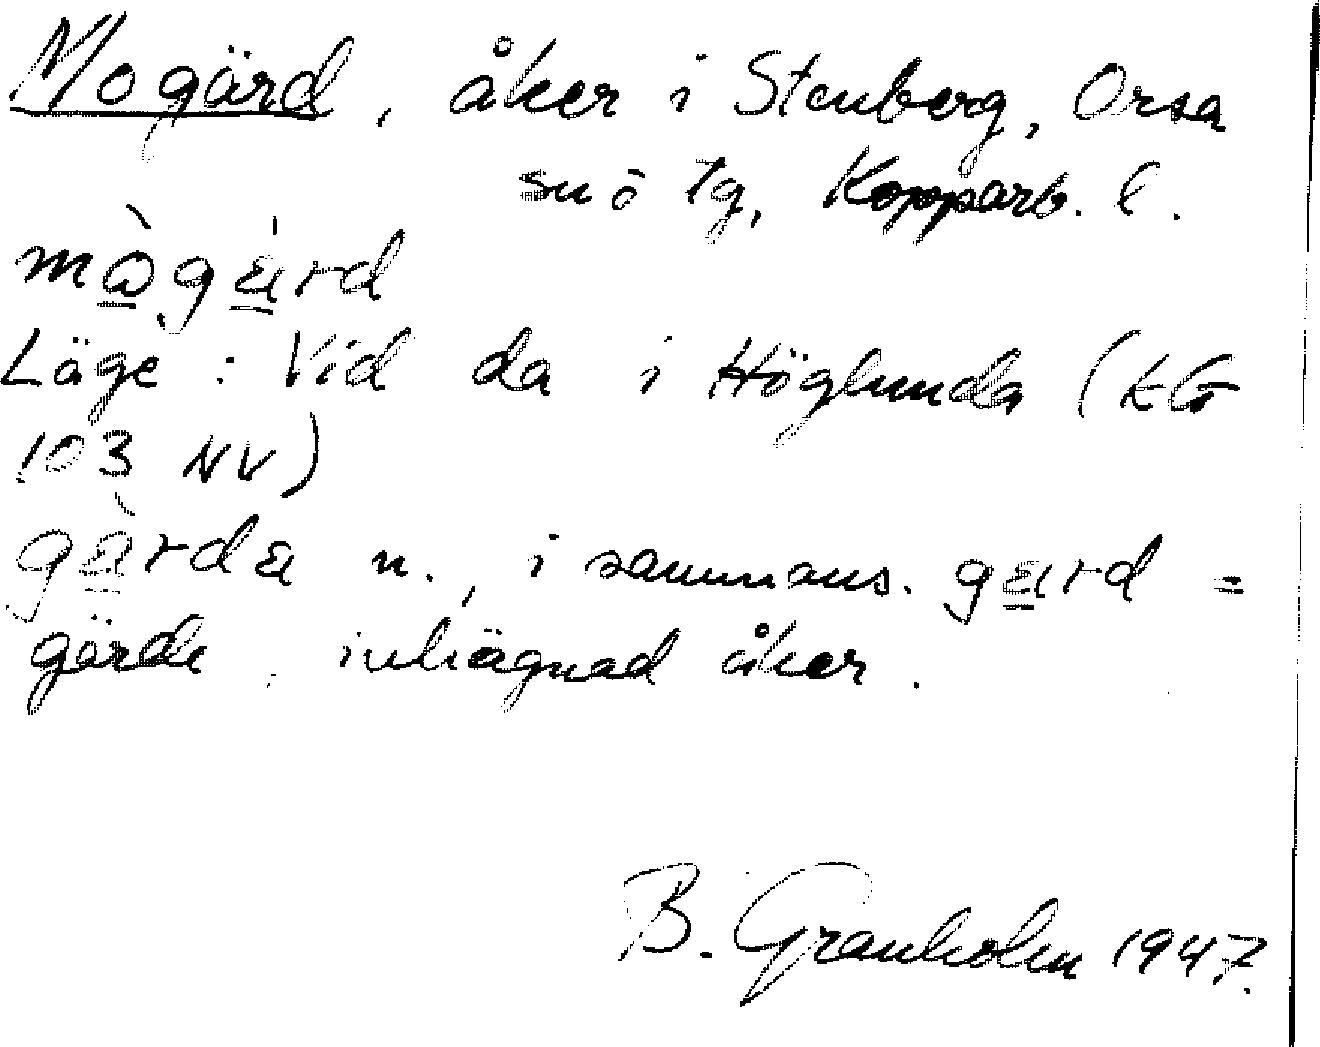 Mogärd, åker i Stenberg, Orsa
sn ö tg, Kopparb. l.
mògá̱rd
Läge: Vid da i Höglunda (EG
103 NV)
gàrda n., i sammans. gard =
gärde, inhägnad åker.
B. Granholm 1947.